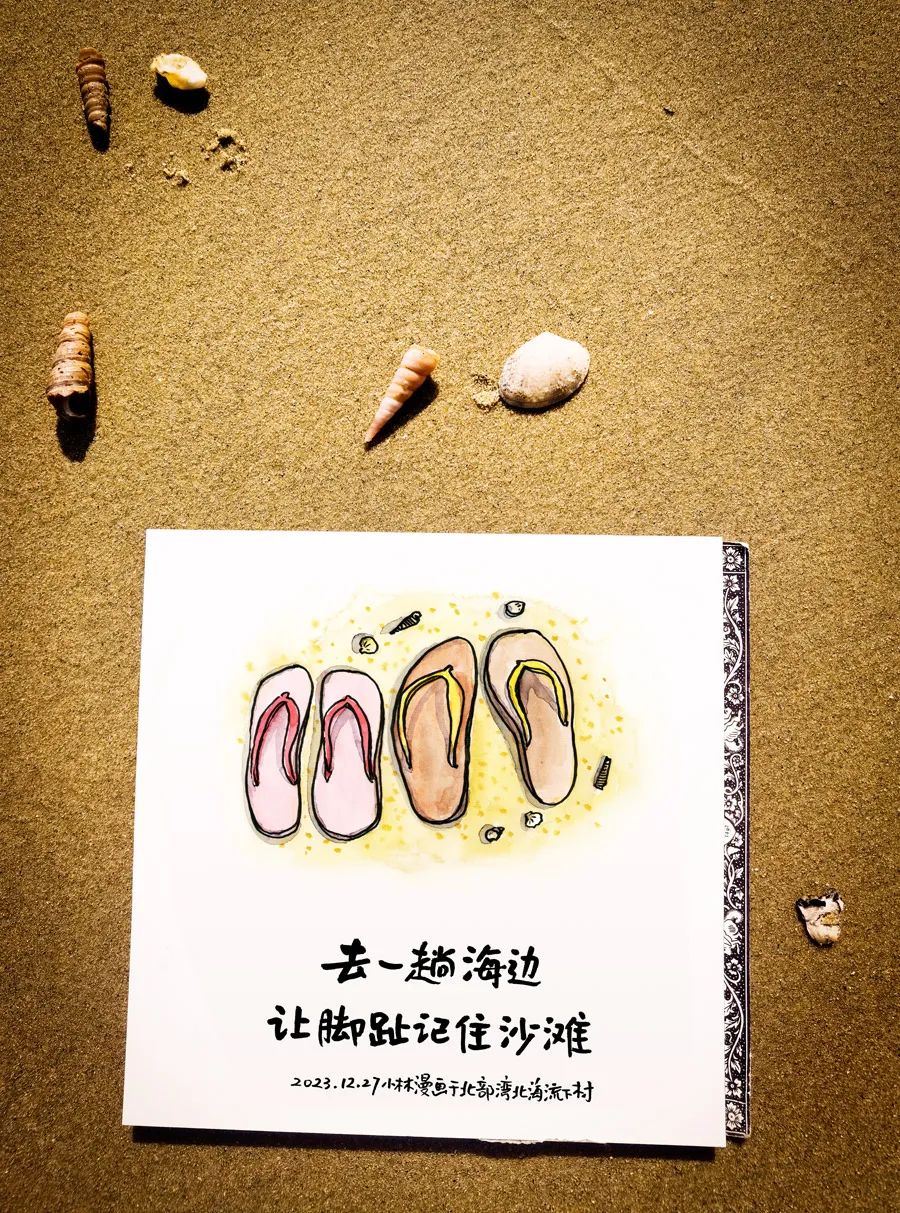 去一趟海边
让脚趾记住沙滩
2023.12.27小林漫画于北部湾北海流下村